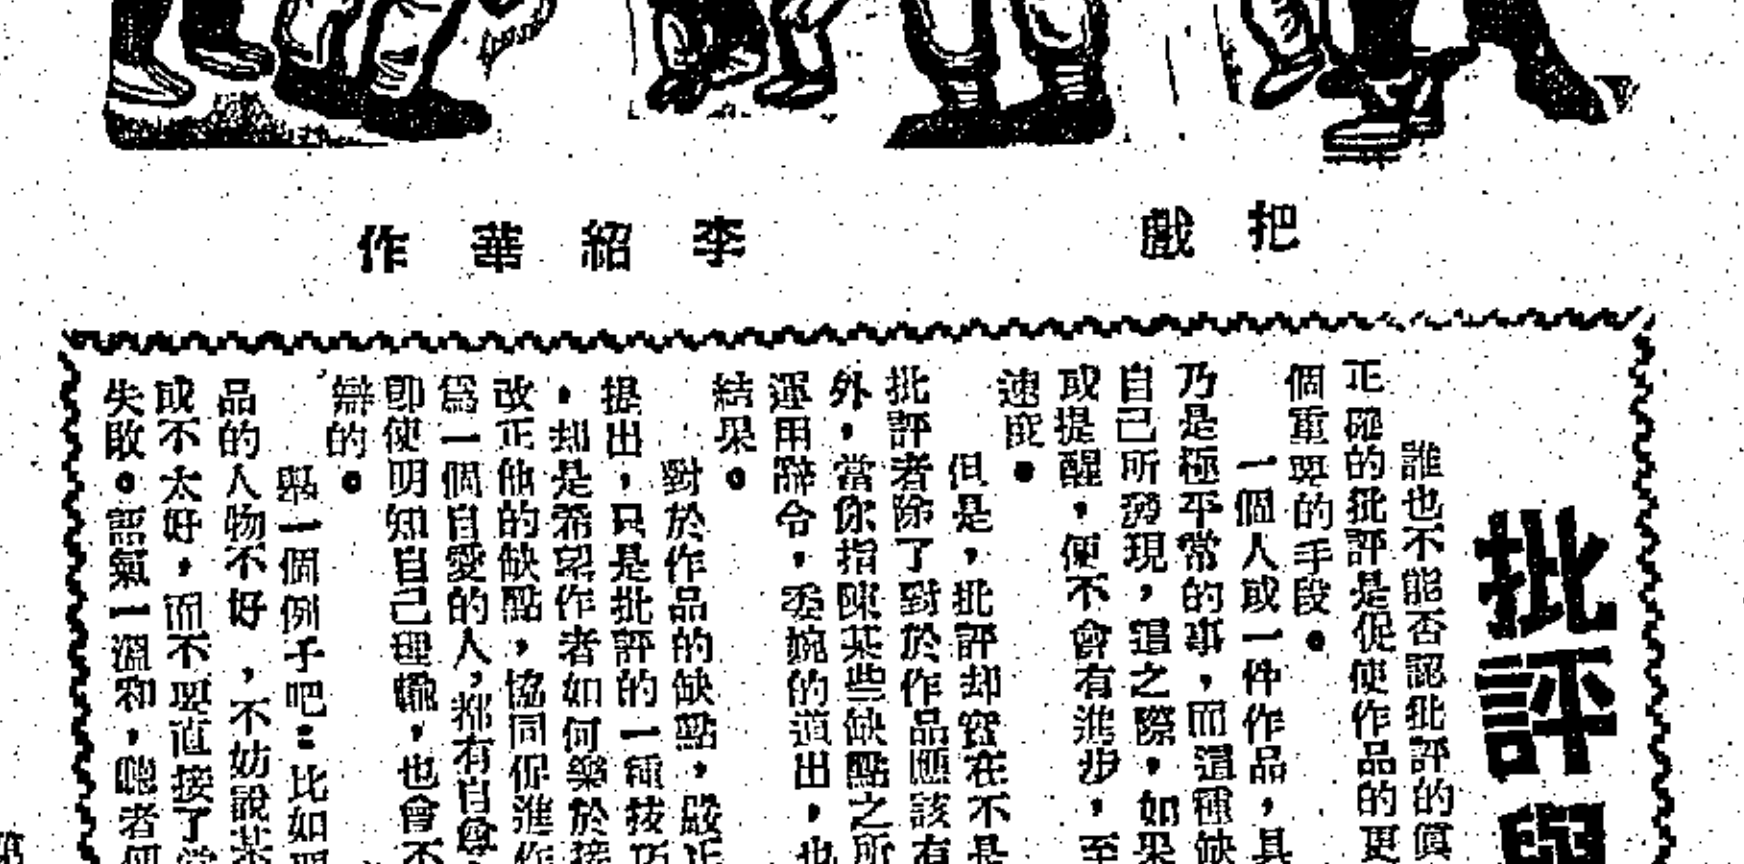 把戲
李紹華作
批評與
誰也不能否認批評的眞
正確的批評是促使作品的更
個重要的手段。
一個人或一件作品，具
乃是極平常的事，而這種缺
自己所發現，這之際，如果
或提醒，便不會有進步，至
速度。
但是，批評却實在不是
批評者除了對於作品應該有
外，當你指陳某些缺點之所
運用辭令，委婉的道出，也
結果。
對於作品的缺點，嚴正
提出，只是批評的一種技巧
，却是希望作者如何樂於接
改正他的缺點，協同促進作
爲一個自愛的人，都有自尊
即使明知自己理虧，也會不
辯的。
舉一個例子吧：比如要
品的人物不好，不妨說某
或不太好，而不要直接了當
失敗。語氣一溫和，聽者何